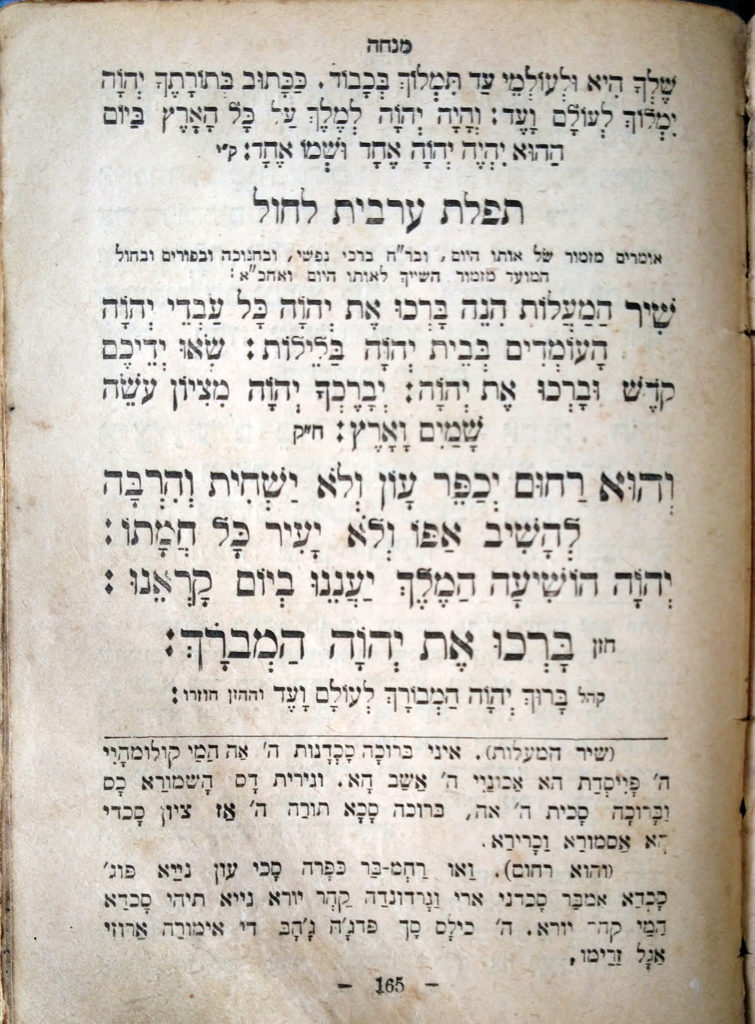 מנחה
שֶׁלְּךָ הִיא וּלְעוֹלְמֵי עַד תִּמְלוֹךְ בְּכָבוֹד. כַּכָּתוּב בְּתוֹרָתֶךָ יְהֹוָה
יִמְלוֹךְ לְעוֹלָם וָעֶד: וְהָיָה יְהֹוָה לְמֶלֶךְ עַל כָּל הָאָרֶץ בַּיּוֹם
הַהוּא יִהְיֶה יְהֹוָה אֶחָד וּשְׁמוֹ אֶחָד:
תפלת ערבית לחול
אומרים מזמור של אותו היום, ובר"ח ברכי נפשי, ובחנוכה ובפורים ובחול
המועד מזמור השייך לאותו היום ואחכ"א:
שִׁיר הַמַּעֲלוֹת הִנֵּה בָּרְכוּ אֶת יְהֹוָה כָּל עַבְדֵי יְהֹוָה
הָעוֹמְדִים בְּבֵית יְהֹוָה בַּלֵּילוֹת: שְׂאוּ יְדֵיכֶם
קֹדֶשׁ וּבָרְכוּ אֶת יְהֹוָה: יְבָרֶכְךָ יְהֹוָה מִצִּיּוֹן עֹשֵׂה
שָׁמַיִם וָאָרֶץ: ח"ק
וְהוּא רַחוּם יְכַפֵּר עָוֹן וְלֹא יַשְׁחִית וְהִרְבָּה
לְהָשִׁיב אַפּוֹ וְלֹא יָעִיר כָּל חֲמָתוֹ:
יְהֹוָה הוֹשִׁיעָה הַמֶּלֶךְ יַעֲנֵנוּ בְיוֹם קָרְאֵנוּ:
חזן בָּרְכוּ אֶת יְהֹוָה הַמְבֹרָךְ:
קהל בָּרוּךְ יְהֹוָה הַמְבוֹרָךְ לְעוֹלָם וָעֶד וההזן חוזרו:
(שיר המעלות). איני ברוכה סָכְדָנות ה' אַה הַמִי קולומהָיִי
ה' פָיִיסְדַת הא אַבוּנֵיִי ה' אַשַב הָא. ונירית דָס הָשמורא כָס
וּבָרוּכָה סָכית ה' אה, ברוכה סָכָא תורה ה' אַז ציון סָכדי
הא אַסמורא וַכָרירא.
(והוא רחום). וַאו רַחְמ-בַר כפרה סָכי עון נייא פוג'
סָכדא אמבַר סָכדני ארי וַגרדונדה קַהר יורא נייא תיהי סָכדא
הַמי קהר יורא. ה' כילָס סָך פדנָ'ה גָ'הָב די אימורה אַרוזי
אַגָל זַרִימו,
- 165 -